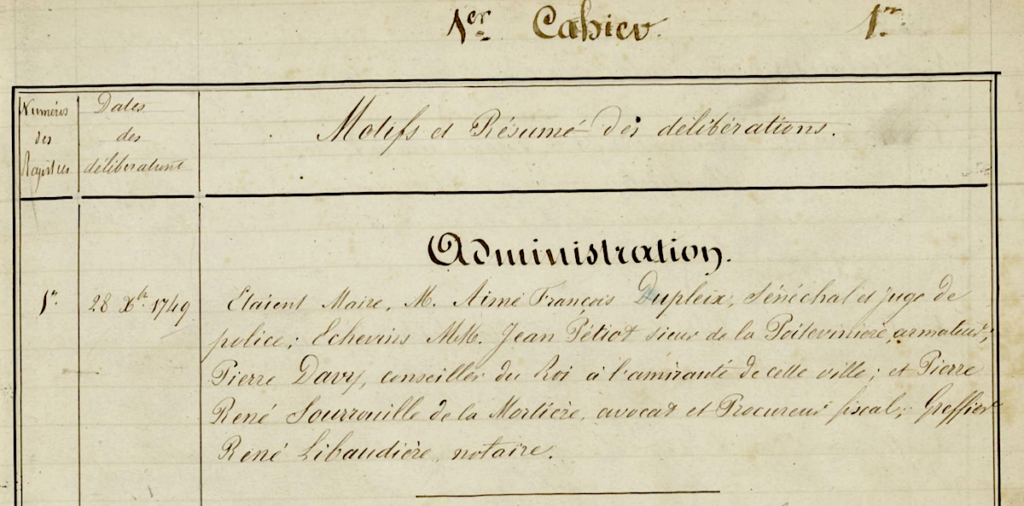 1er Cahier. 1er
Numéros
des
Registres
Dates
des
délibérations
Motifs et Résumé des délibérations.
Administration.
1er 28 Xbre 1749 Etaient Maire, M. Aimé François Dupleix, Sénéchal et juge de
police; Echevins MM. Jean Pétiot sieur de la Poitevinière, armateur;
Pierre Davy, conseiller du Roi à l'amirauté de cette ville; et Pierre
René Sourrouille de la Mortière, avocat et Procureur fiscal; Greffier
René Libaudière, notaire.